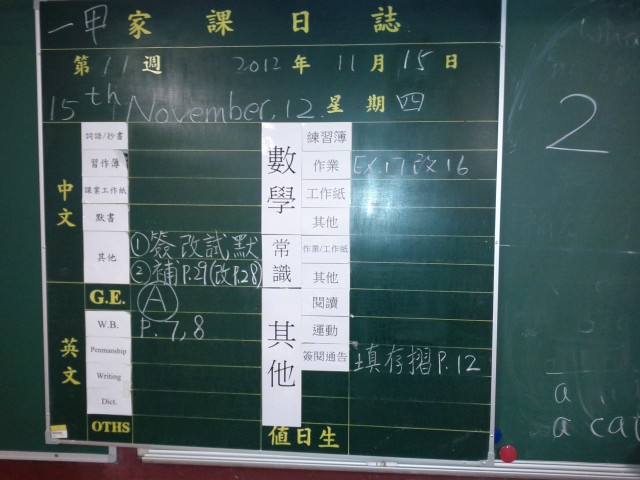 一甲家課日誌
第11週 2012年11月15日
15th November, 12 星期四
中文
詞語/抄書
習作簿
課業工作紙
默書
其他 ①簽改試默
②補P.29(改P.28)
G.E. Ⓐ
英文
W.B. P.7,8
Penmanship
Writing
Dict.
OTHS
數學
練習簿
作業 Ex.17改16
工作紙
其他
常識
作業/工作紙
其他
其他
閱讀
運動
簽閱通告 填存摺P.12
值日生
2
a
a cat